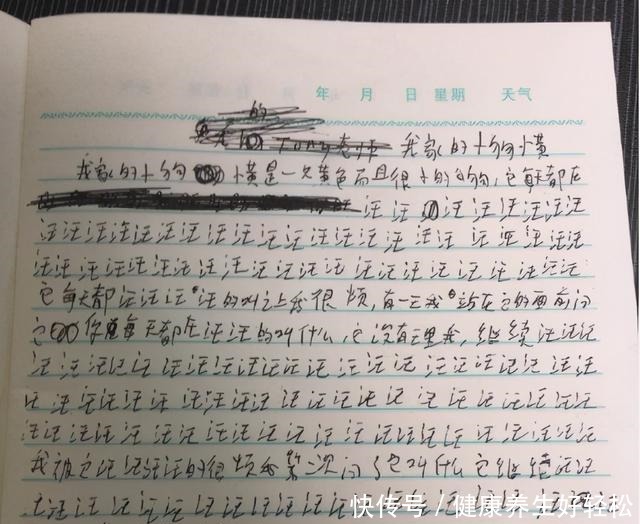 年 月 日 星期 天气
的
Tony老师 我家的小狗小黄
我家的小狗小黄是一只黄色而且很小的狗狗,它每天都在
汪汪汪汪汪汪汪汪
汪汪汪汪汪汪汪汪汪汪汪汪汪汪汪汪汪
汪汪汪汪汪汪汪汪汪汪汪汪汪汪汪汪汪
它每天都汪汪汪汪的叫让我很烦,有一天我站在它的面前问
它你每天都在汪汪的叫什么,它没有理我,继续汪汪汪
汪汪汪汪汪汪汪汪汪汪汪汪汪汪汪汪汪
汪汪汪汪汪汪汪汪汪汪汪汪汪汪汪汪汪
汪汪汪汪汪汪汪汪汪汪汪汪汪汪汪汪汪
我被它汪汪汪汪的很烦我第二次问了它叫什么它继续汪汪
汪汪汪汪汪汪汪汪汪汪汪
快传号 / 健康养生好轻松